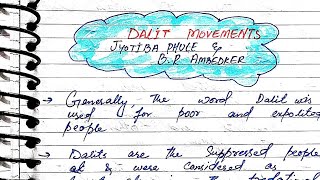 DALIT MOVEMENTS
JYOTIBA PHULE &
B.R AMBEDKER
→ Generally, The word Dalit wis
used for poor and expolited
people
→ Dalits are the suppressed people
at & were considered as